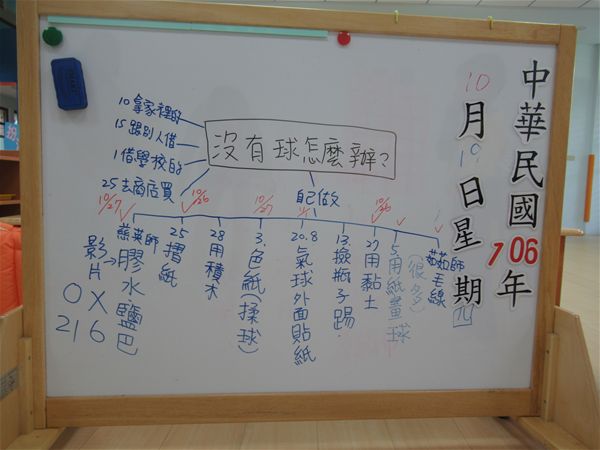 中華民國106年
10月19日星期四
沒有球怎麼辦?
10拿家裡的
15跟別人借
1借學校的
25去商店買
自己做
10/27
10/26
10/27
10/26
燕英師
膠水鹽巴
影片
O X
21 6
25摺紙
28用積木
3.色紙(揉球)
20.8氣球外面貼紙
13.搬瓶子踢.
27用黏土
5用紙畫球
茹茹師毛線
(很多)